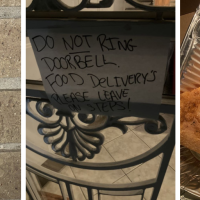 DO NOT RING
DOORBELL,
FOOD DELIVERY'S
PLEASE LEAVE
ON STEPS!